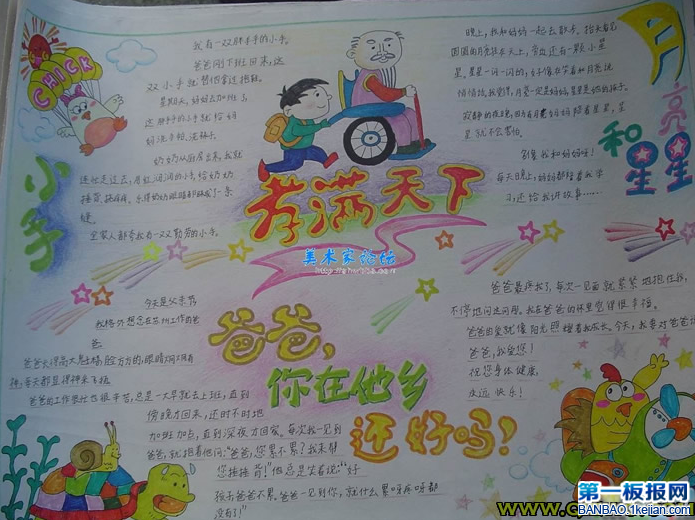 CHICK
小手
我有一双胖手手的小手。
爸爸刚下班回来，这
双小手就替他拿过拖鞋。
星期天，妈妈去加班了，
这胖胖的小手就给妈
妈洗手帕、洗袜子。
奶奶从厨房出来，我就
连忙走过去，
里家人都夸我有一双勤劳的小手。
孝满天下
美术家论坛
月亮和星星
晚上，我和妈妈一起去散步。抬头看见
圆圆的月亮挂在天上，旁边还有一颗小星
星。星星一闪一闪的，好像在笑着和月亮说
悄悄话。我觉得，月亮一定是妈妈，星星是她的孩子。
寂静的夜晚，因为有月亮妈妈陪着星星，星
星就不会害怕。
多像我和妈妈呀！
每天晚上，妈妈都陪着我学
习，还给我讲故事……
今天是父亲节
我格外想念在苏州工作的爸
爸
爸爸长得高大魁梧，脸方方的，眼睛
爸爸的工作繁忙也很辛苦，总是一大早就去上班，直到
傍晚才回来，还时不时地
加班加点，直到深夜才回家。每次我一见到
爸爸，就抱着他问：“爸爸，您累不累？我来帮
您捶捶背！”他总是笑着说：“好
孩子，爸爸不累。爸爸一见到你，就什么累呀疼呀都
没有了！”
爸爸，
你在他乡
还好吗！
爸爸最疼我了，每次一见面就紧紧地抱住我，
不停地问这问那。我在爸爸的怀里觉得很幸福。
爸爸的爱就像阳光照耀着我成长。今天，我要对爸爸说
爸爸，我爱您！
祝您身体健康，
永远快乐！
第一板报网
BANBAO.1kejian.com